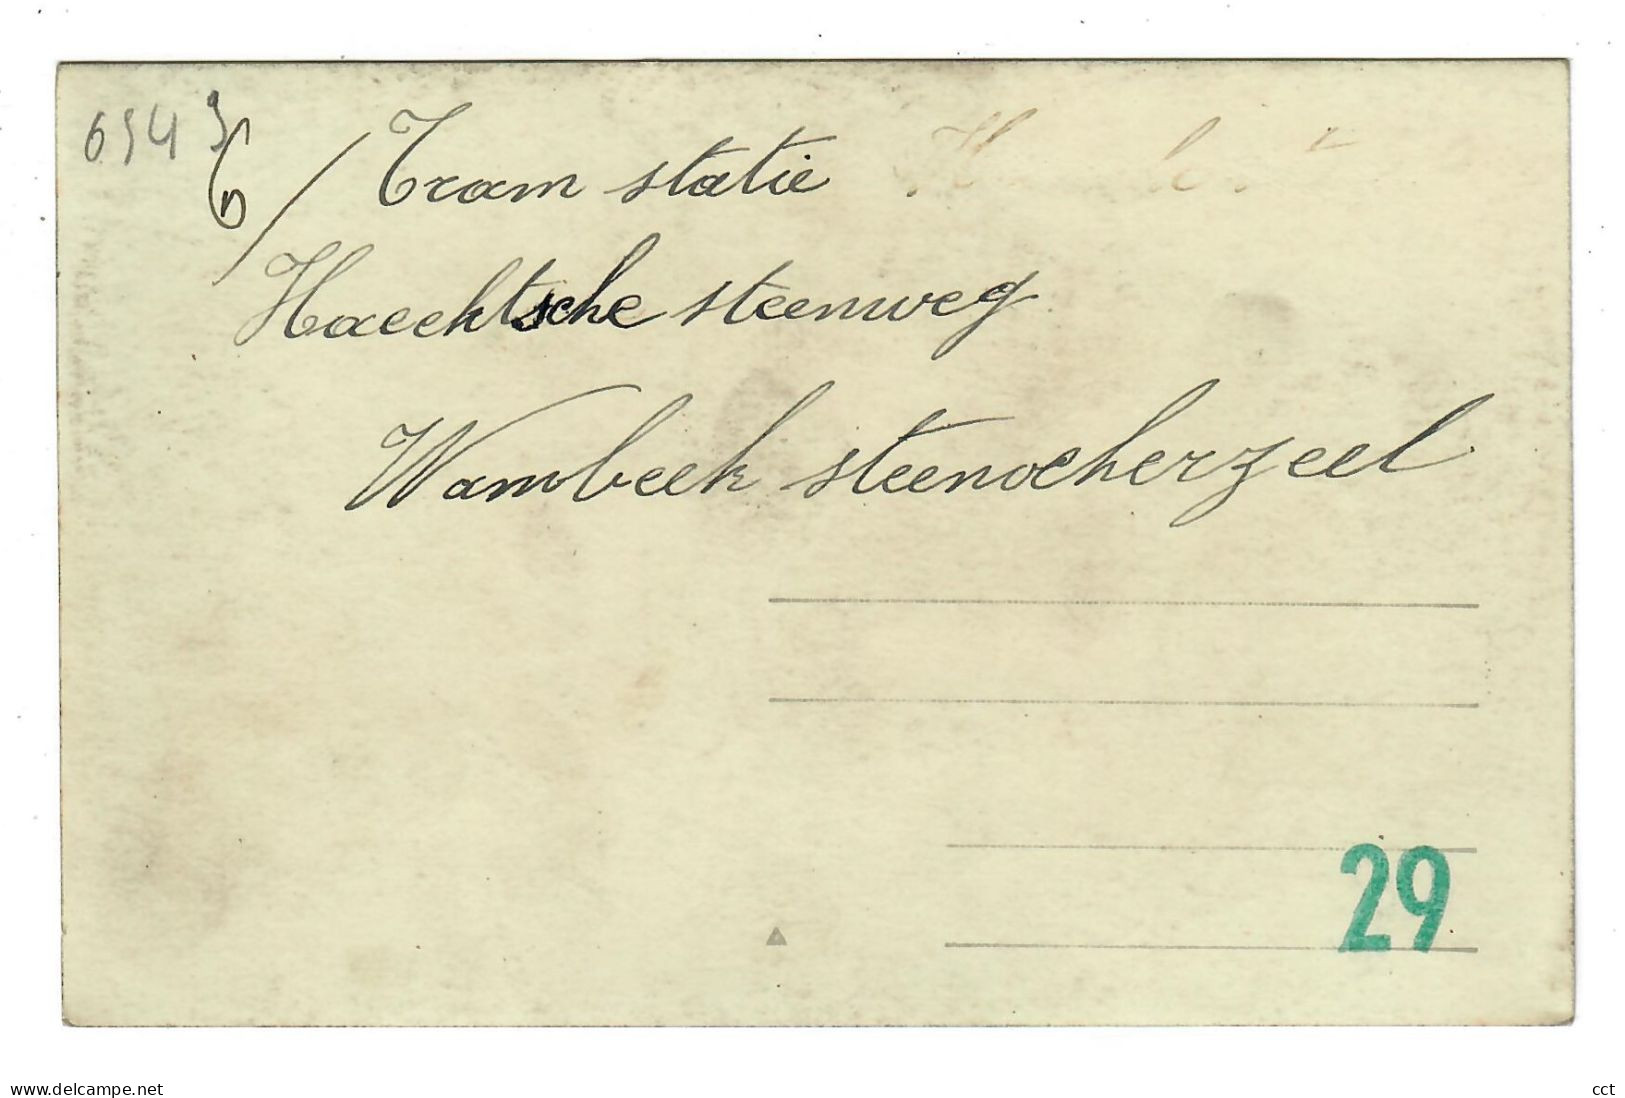 6/ Tram statie
Haechtsche steenweg
Wambeek steenocherzeel
29
www.delcampe.net
cct